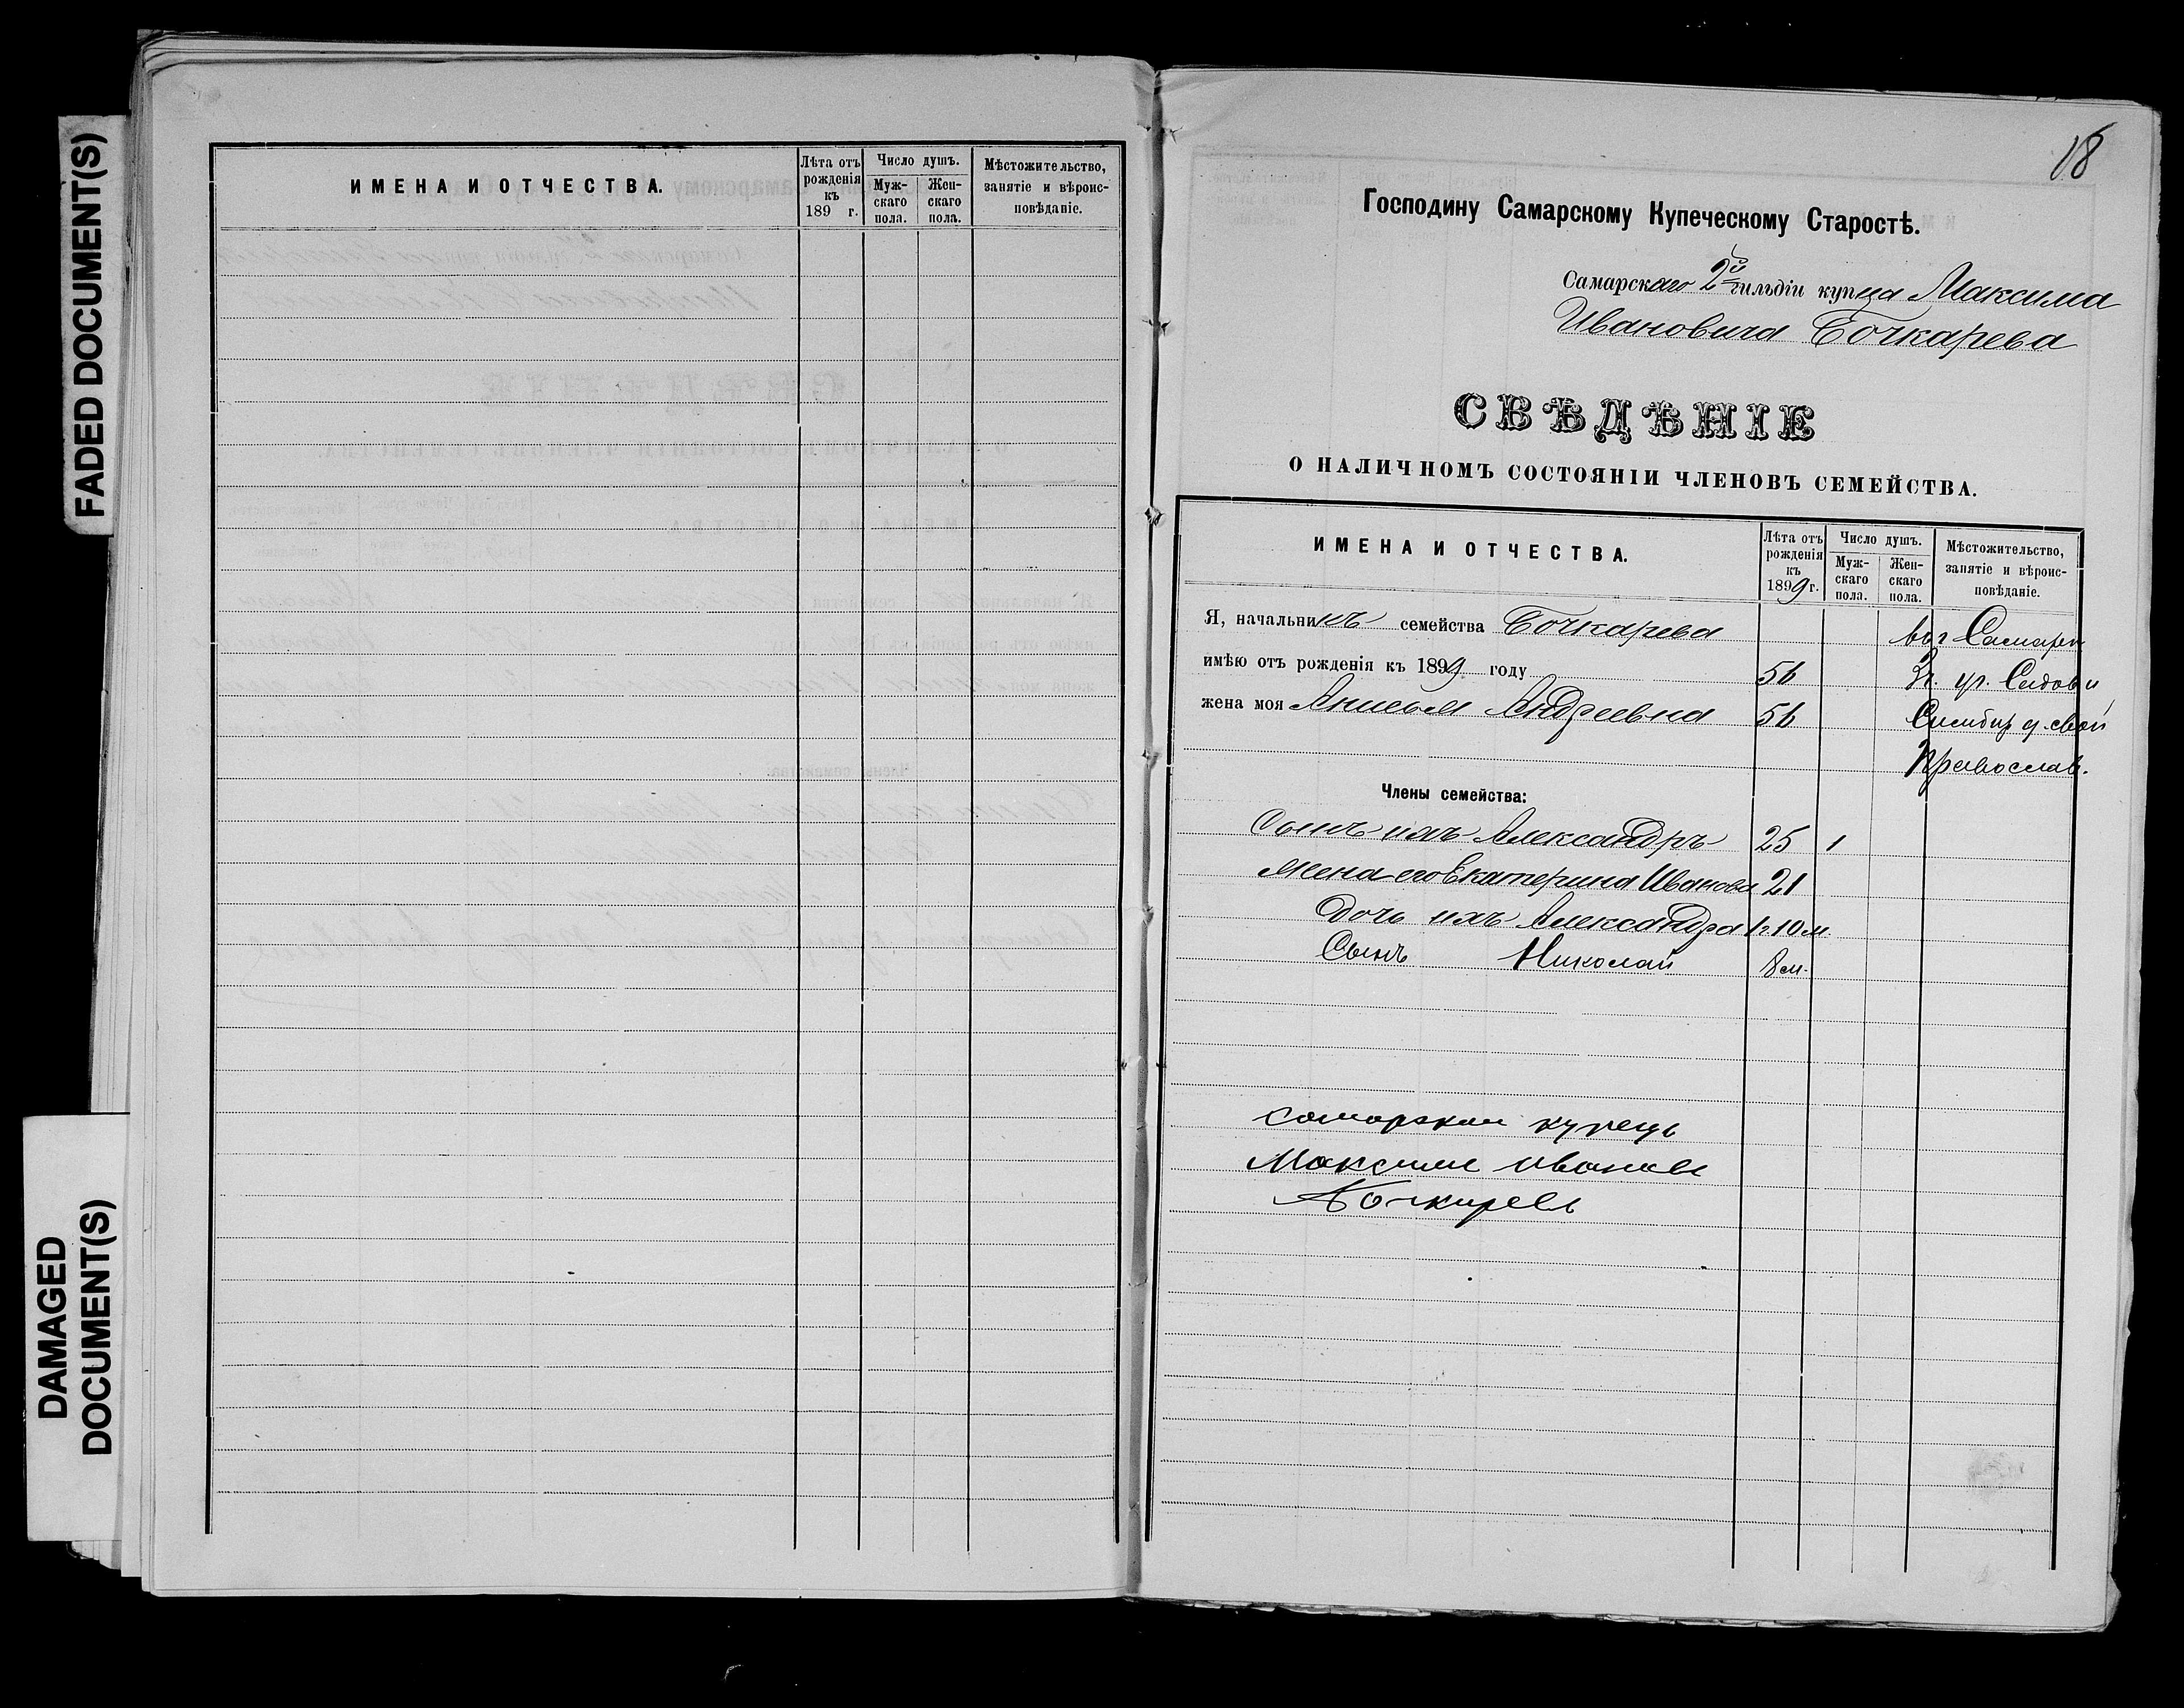 FADED DOCUMENT(S)
DAMAGED
DOCUMENT(S)
ИМЕНА И ОТЧЕСТВА.
Лѣта отъ
рожденія
къ
189 г.
Число душъ.
Муж-
скаго
пола.
Жен-
скаго
пола.
Мѣстожительство,
занятіе и вѣроис-
повѣданіе.
18
Господину Самарскому Купеческому Старостѣ.
Самарскаго 2й гильдіи купца Максима
Ивановича Бочкарева
СВѢДѢНІЕ
О НАЛИЧНОМЪ СОСТОЯНІИ ЧЛЕНОВЪ СЕМЕЙСТВА.
ИМЕНА И ОТЧЕСТВА.
Лѣта отъ
рожденія
къ
1899 г.
Число душъ.
Муж-
скаго
пола.
Жен-
скаго
пола.
Мѣстожительство,
занятіе и вѣроис-
повѣданіе.
Я, начальникъ семейства Бочкарева Самарѣ
имѣю отъ рожденія къ 1899 году 56 уг. Садов и
жена моя Андреевна 56 Симбир
Православ.
Члены семейства:
Сынъ ихъ Александръ 25 1
Жена его Екатерина Иванова 21
Дочь ихъ Александра 1 г. 10 м.
Сынъ Николай 8 м.
самарскаи купецъ
Максиме Иванове
Бочкарев